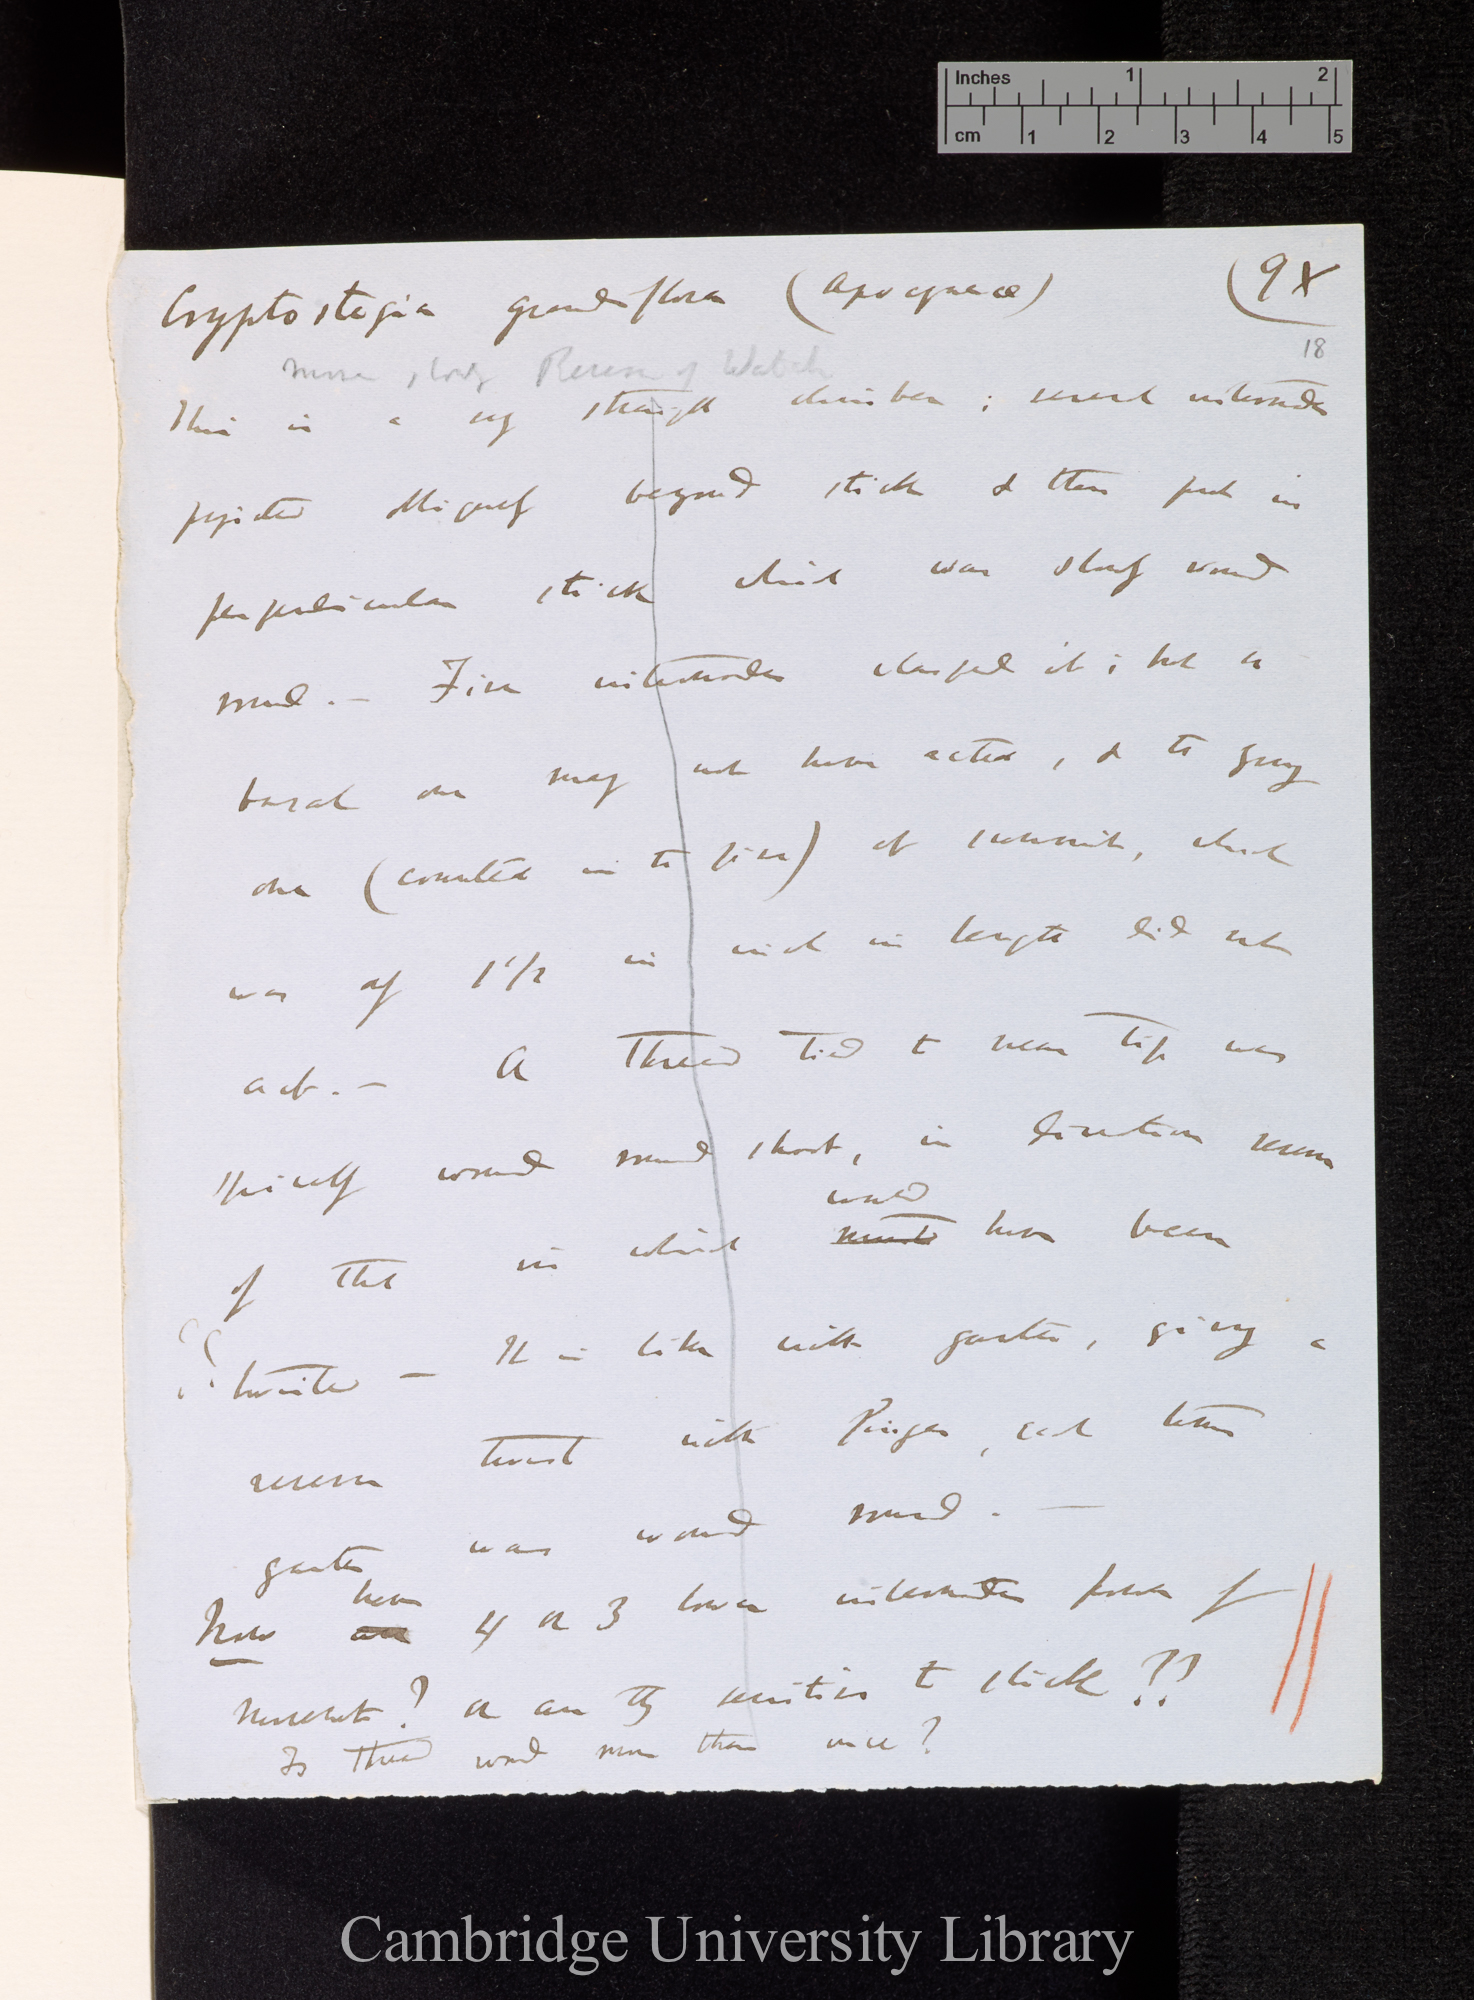 Inches 1 2
cm 1 2 3 4 5
Cryptostegia grandiflora (Apocyneae) (9X
18
moves slowly Reverse of Watch
This is a very strong climber; several internodes
projected obliquely beyond stick & then put in
perpendicular stick which was slowly wound
round. — Five internodes clasped it; but the
basal one may not have acted, & the young
one (counted in the five) at summit, which
was of 1 1/2 in inch in length did not
act. — A thread tied to near tip was
itself wound round shoot, in direction reverse
would
of that in which must have been
twisted — It is like with garter, giving a
reverse twist with finger, each time
garter was wound round. —
have
How are 4 or 3 lower internodes power of
movement? or are they sensitive to stick??
Is thread wound more than once?
Cambridge University Library